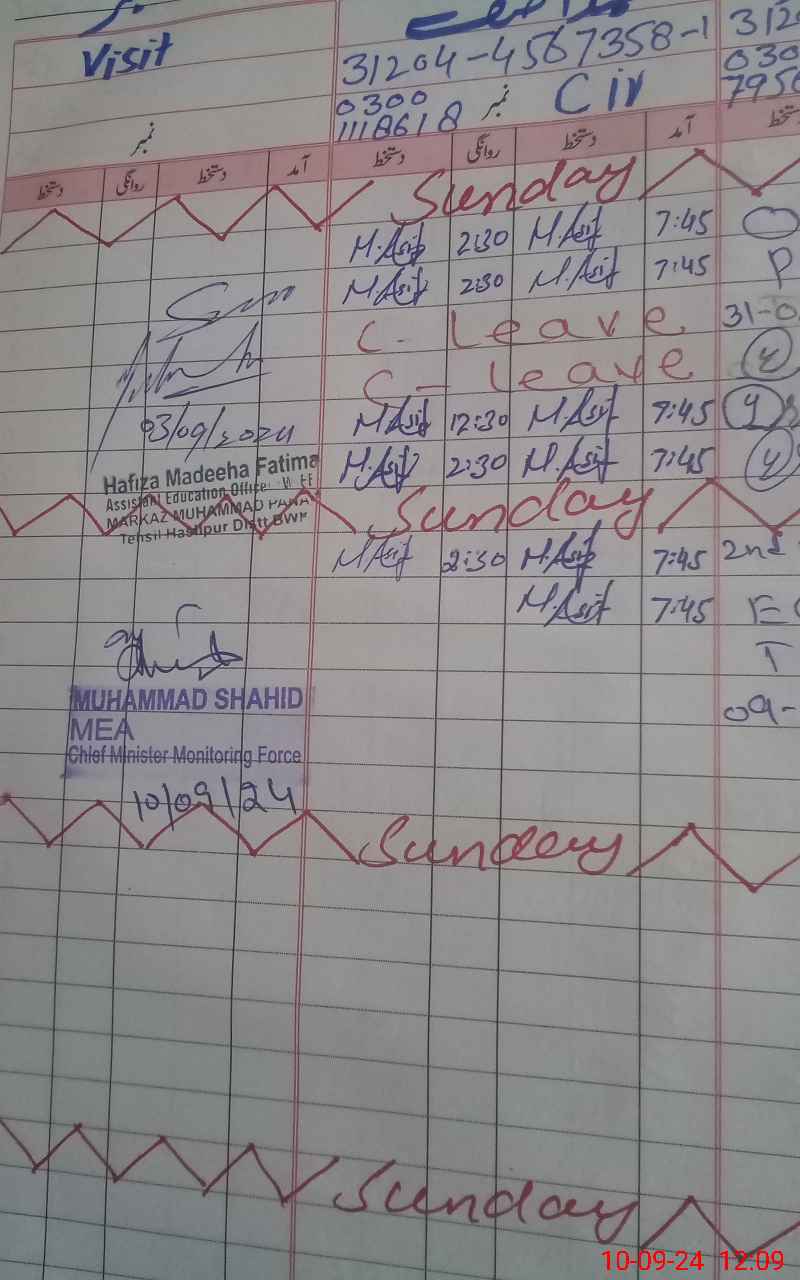 Visit
31204-4567358-1 312
0300 030
1118618 نمبر Civ 7950
نمبر
دستخط روانگی دستخط آمد دستخط روانگی دستخط آمد دستخط
Sunday
M.Asif 2:30 M.Asif 7:45
M.Asif 2:30 M.Asif 7:45 P
C. Leave 31-0
C - leave
03/09/2024 M.Asif 12:30 M.Asif 7:45
Hafiza Madeeha Fatima M.Asif 2:30 M.Asif 7:45
Assistant Education Officer
MARKAZ MUHAMMAD PANAH Sunday
Tehsil Hasilpur Distt BWP
M.Asif 2:30 M.Asif 7:45 2nd
M.Asif 7:45
T
MUHAMMAD SHAHID
MEA 09-
Chief Minister Monitoring Force
10/09/24
Sunday
Sunday
10-09-24 12:09